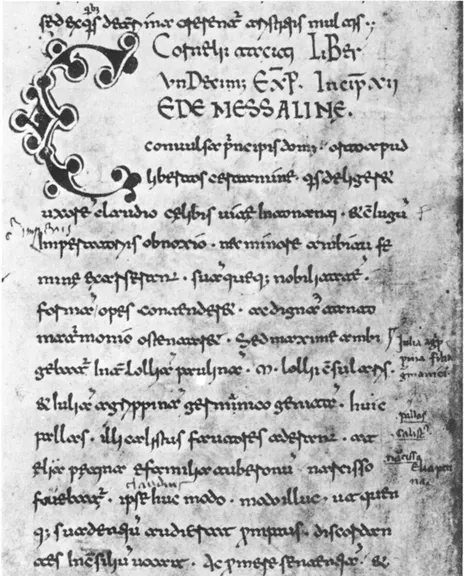 sed ex quis deterrima orerentur tristitiis multis ·,·
Cornelii taciti Liber
VnDecimus Exp̄. Incip̄ xii
CEDE MESSALINE.
conuulsa p̄ncipis domus · orto apud
libertos certamine · q̄s deligeret
uxorē claudio celibis uite Intoleranti · & c̄iugū
Imperatoriis obnoxio · nec minore ambitu fe
mine exarserant · suā queq; nobilitatē ·
formā opes contendere · ac digna tanto
matrimonio ostentare · Sed maxime ambi
gebat̄ Int̄ lolliā paulinā · M · lollii c̄sularis ·
& Iuliā agrippinā germanico genitā · huic
pallas · illi calistus fautores aderant · at
elia petina e familia tuberonū · narcisso
fouebat̄ · ipse huc modo · modo illuc · ut quen
q; suadentiū audierat p̄mptus · discordan
tes In c̄siliū uocat · Ac p̄mere sententiā · &
claudius
Iulia agp
pina filia
gmanici
pallas
calist᾽
narcissus
Elia peti
na.